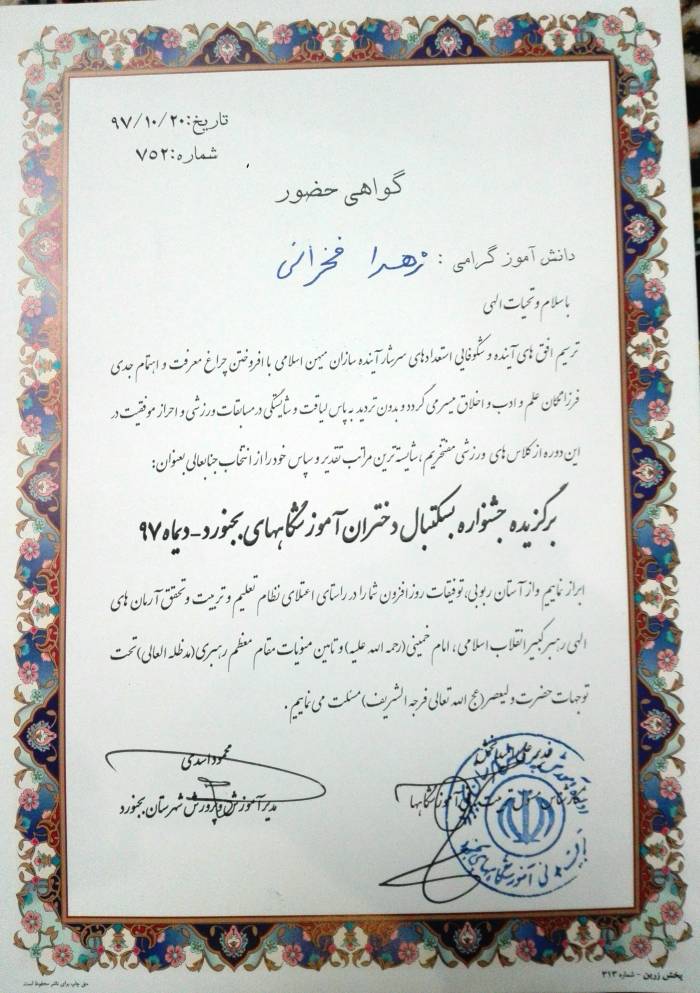 تاریخ:۹۷/۱۰/۲۰
شماره:۷۵۲
گواهی حضور
دانش آموز گرامی : زهرا فخرانی
باسلام و تحیات الهی
ترسیم افق های آینده و شکوفایی استعدادهای سرشار آینده سازان میهن اسلامی با افروختن چراغ معرفت و اهتمام جدی
فرزانگان علم و ادب و اخلاق میسر می گردد و بدون تردید به پاس لیاقت و شایستگی در مسابقات ورزشی و احراز موفقیت در
این دوره از کلاس های ورزشی مفتخریم ، شایسته ترین مراتب تقدیر و سپاس خود را از انتخاب جنابعالی بعنوان:
برگزیده جشنواره بسکتبال دختران آموزشگاههای بجنورد-دیماه ۹۷
ابراز نماییم و از آستان ربوبی، توفیقات روزافزون شما را در راستای اعتلای نظام تعلیم و تربیت و تحقق آرمان های
الهی رهبر کبیر انقلاب اسلامی، امام خمینی(رحمه الله علیه)و تامین منویات مقام معظم رهبری(مدظله العالی)تحت
توجهات حضرت ولیعصر(عج الله تعالی فرجه الشریف)مسئلت می نماییم .
محمود اسدی
مدیر آموزش و پرورش شهرستان بجنورد
کارشناس مسئول تربیت آموزشگاهها
پخش زرین - شماره ۳۱۳
حق چاپ برای ناشر محفوظ است.